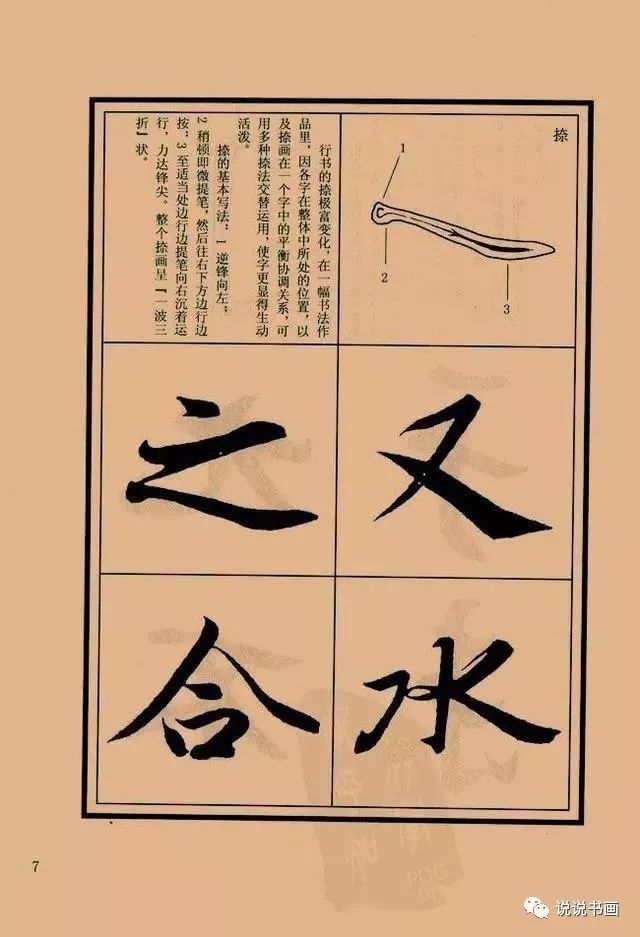 捺
1
2
3
行书的捺极富变化，在一幅书法作
品里，因各字在整体中所处的位置，以
及捺画在一个字中的平衡协调关系，可
用多种捺法交替运用，使字更显得生动
活泼。
捺的基本写法：1 逆锋向左；
2 稍顿即微提笔，然后往右下方边行边
按；3 至适当处边行边提笔向右沉着运
行，力达锋尖。整个捺画呈『一波三
折』状。
又
之
水
合
PDG
7
说说书画